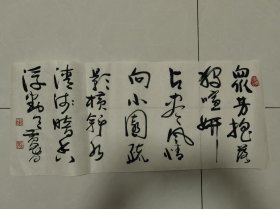 眾芳搖落
獨暄妍
占盡風情
向小園疏
影橫斜水
清淺暗香
浮動月黃昏